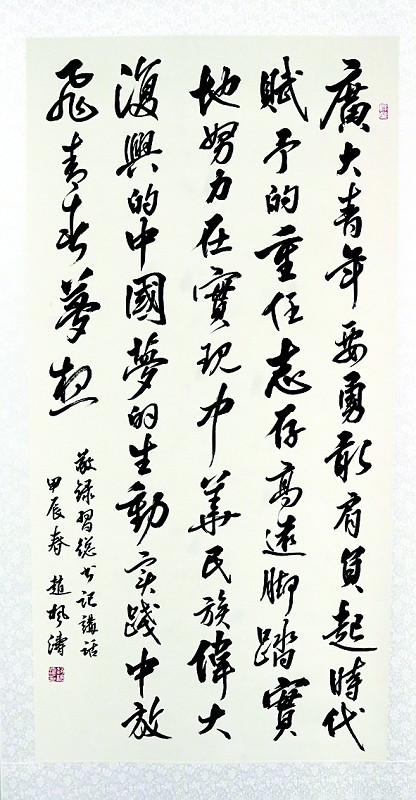 廣大青年要勇敢肩負起時代
賦予的重任志存高遠脚踏實
地努力在實現中華民族偉大
復興的中國夢的生動实踐中放
飛青春夢想
敬録習總书記講話
甲辰春 趙楓濤